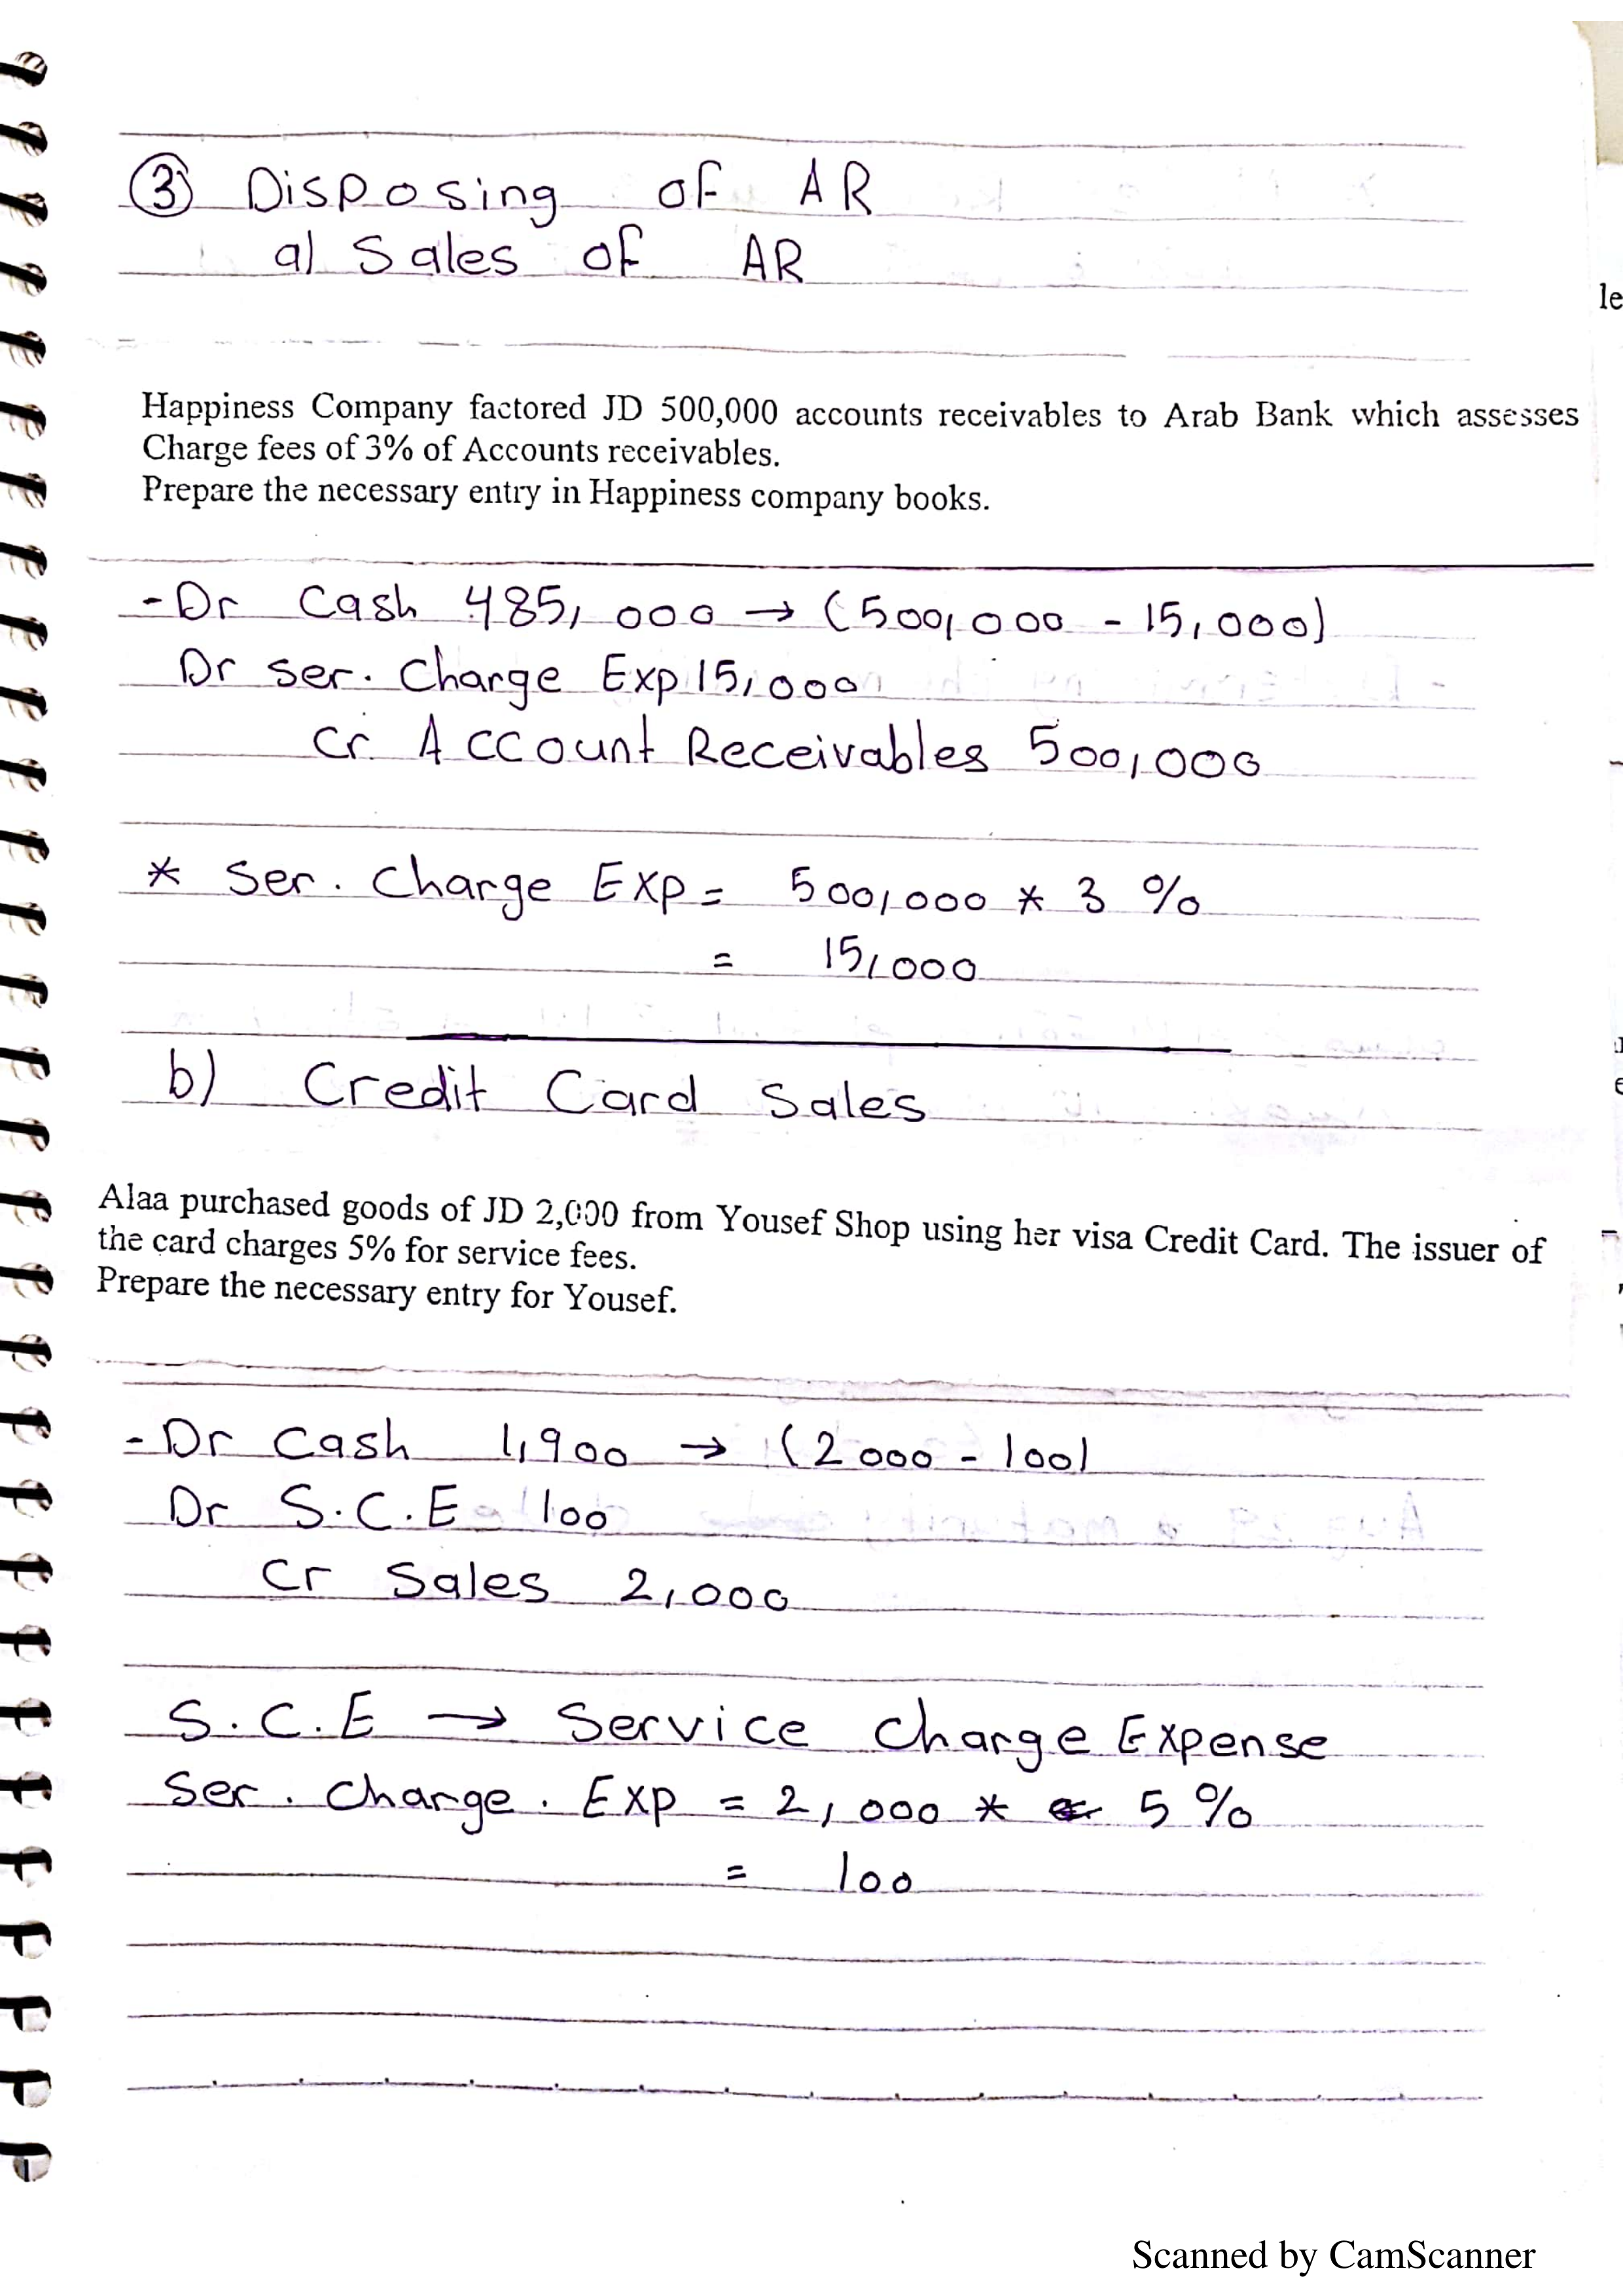 ③ Disposing of AR
a) Sales of AR
le
Happiness Company factored JD 500,000 accounts receivables to Arab Bank which assesses
Charge fees of 3% of Accounts receivables.
Prepare the necessary entry in Happiness company books.
- Dr Cash 485,000 → (500,000 - 15,000)
Dr ser. Charge Exp 15,000
Cr Account Receivables 500,000
* Ser. Charge Exp = 500,000 * 3 %
= 15,000
b) Credit Card Sales
Alaa purchased goods of JD 2,000 from Yousef Shop using her visa Credit Card. The issuer of
the card charges 5% for service fees.
Prepare the necessary entry for Yousef.
- Dr Cash 1,900 → (2000 - 100)
Dr S.C.E 100
Cr Sales 2,000
S.C.E → Service Charge Expense
Ser. Charge. Exp = 2,000 * 5 %
= 100
Scanned by CamScanner